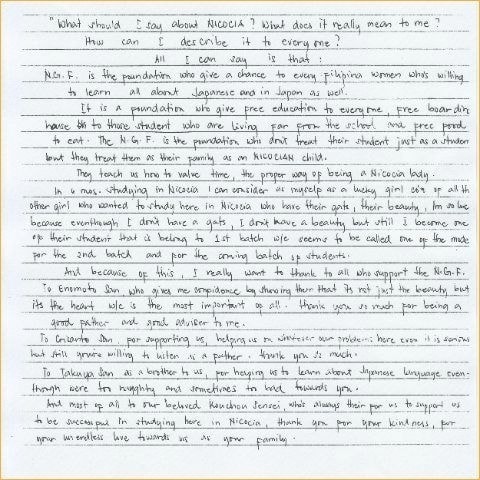 "What should I say about NICOCIA? What does it really mean to me?
How can I describe it to everyone?
All I can say is that:
N.G.F. is the foundation who give a chance to every filipina women who's willing
to learn all about Japanese and in Japan as well.
It is a foundation who give free education to everyone, free boardin
house to those student who are living far from the school and free food
to eat. The N.G.F. is the foundation who don't treat their student just as a studen
but they treat them as their family as an NICOCIAN child.
They teach us how to value time, the proper way of being a Nicocia lady.
In 6 mos. studying in Nicocia I can consider as myself as a lucky girl of all th
other girl who wanted to study here in Nicocia who have their gats, their beauty, Im so lue
because eventhough I don't have a gats, I don't have a beauty but still I become one
of their student that is belong to 1st batch w/c seems to be called one of the mode
for the 2nd batch and for the coming batch of students.
And because of this, I really want to thank to all who support the N.G.F.
To Enomoto San who gives me confidence by showing them that its not just the beauty but
its the heart w/c is the most important of all. thank you so much for being a
good father and good adviser to me.
To San, for supporting us, helping us on whatever our problems here even it is serious
but still you're willing to listen as a father. thank you so much.
To Takuya San as a brother to us, for helping us to learn about Japanese language even-
though were too naughty and sometimes to bad towards you.
And most of all to our beloved Kouchou Sensei, who's always their for us to support us
to be successful in studying here in Nicocia, thank you for your kindness, for
your un endless love towards us as your family.